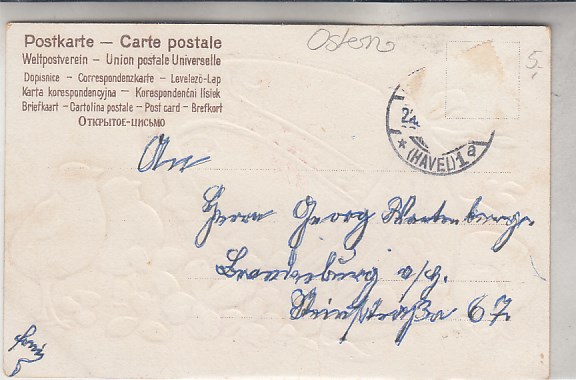 Postkarte — Carte postale
Weltpostverein — Union postale Universelle
Dopisnice — Correspondenzkarte — Levelező-Lap
Karta korespondencyjna — Korespondenční lístek
Briefkaart — Cartolina postale — Post card — Brefkort
Открытое-письмо
Osten
5.
* (HAVEL) 1 a
An
Herrn Georg Wartenberg
Brandenburg a/H.
Steinstraße 67.